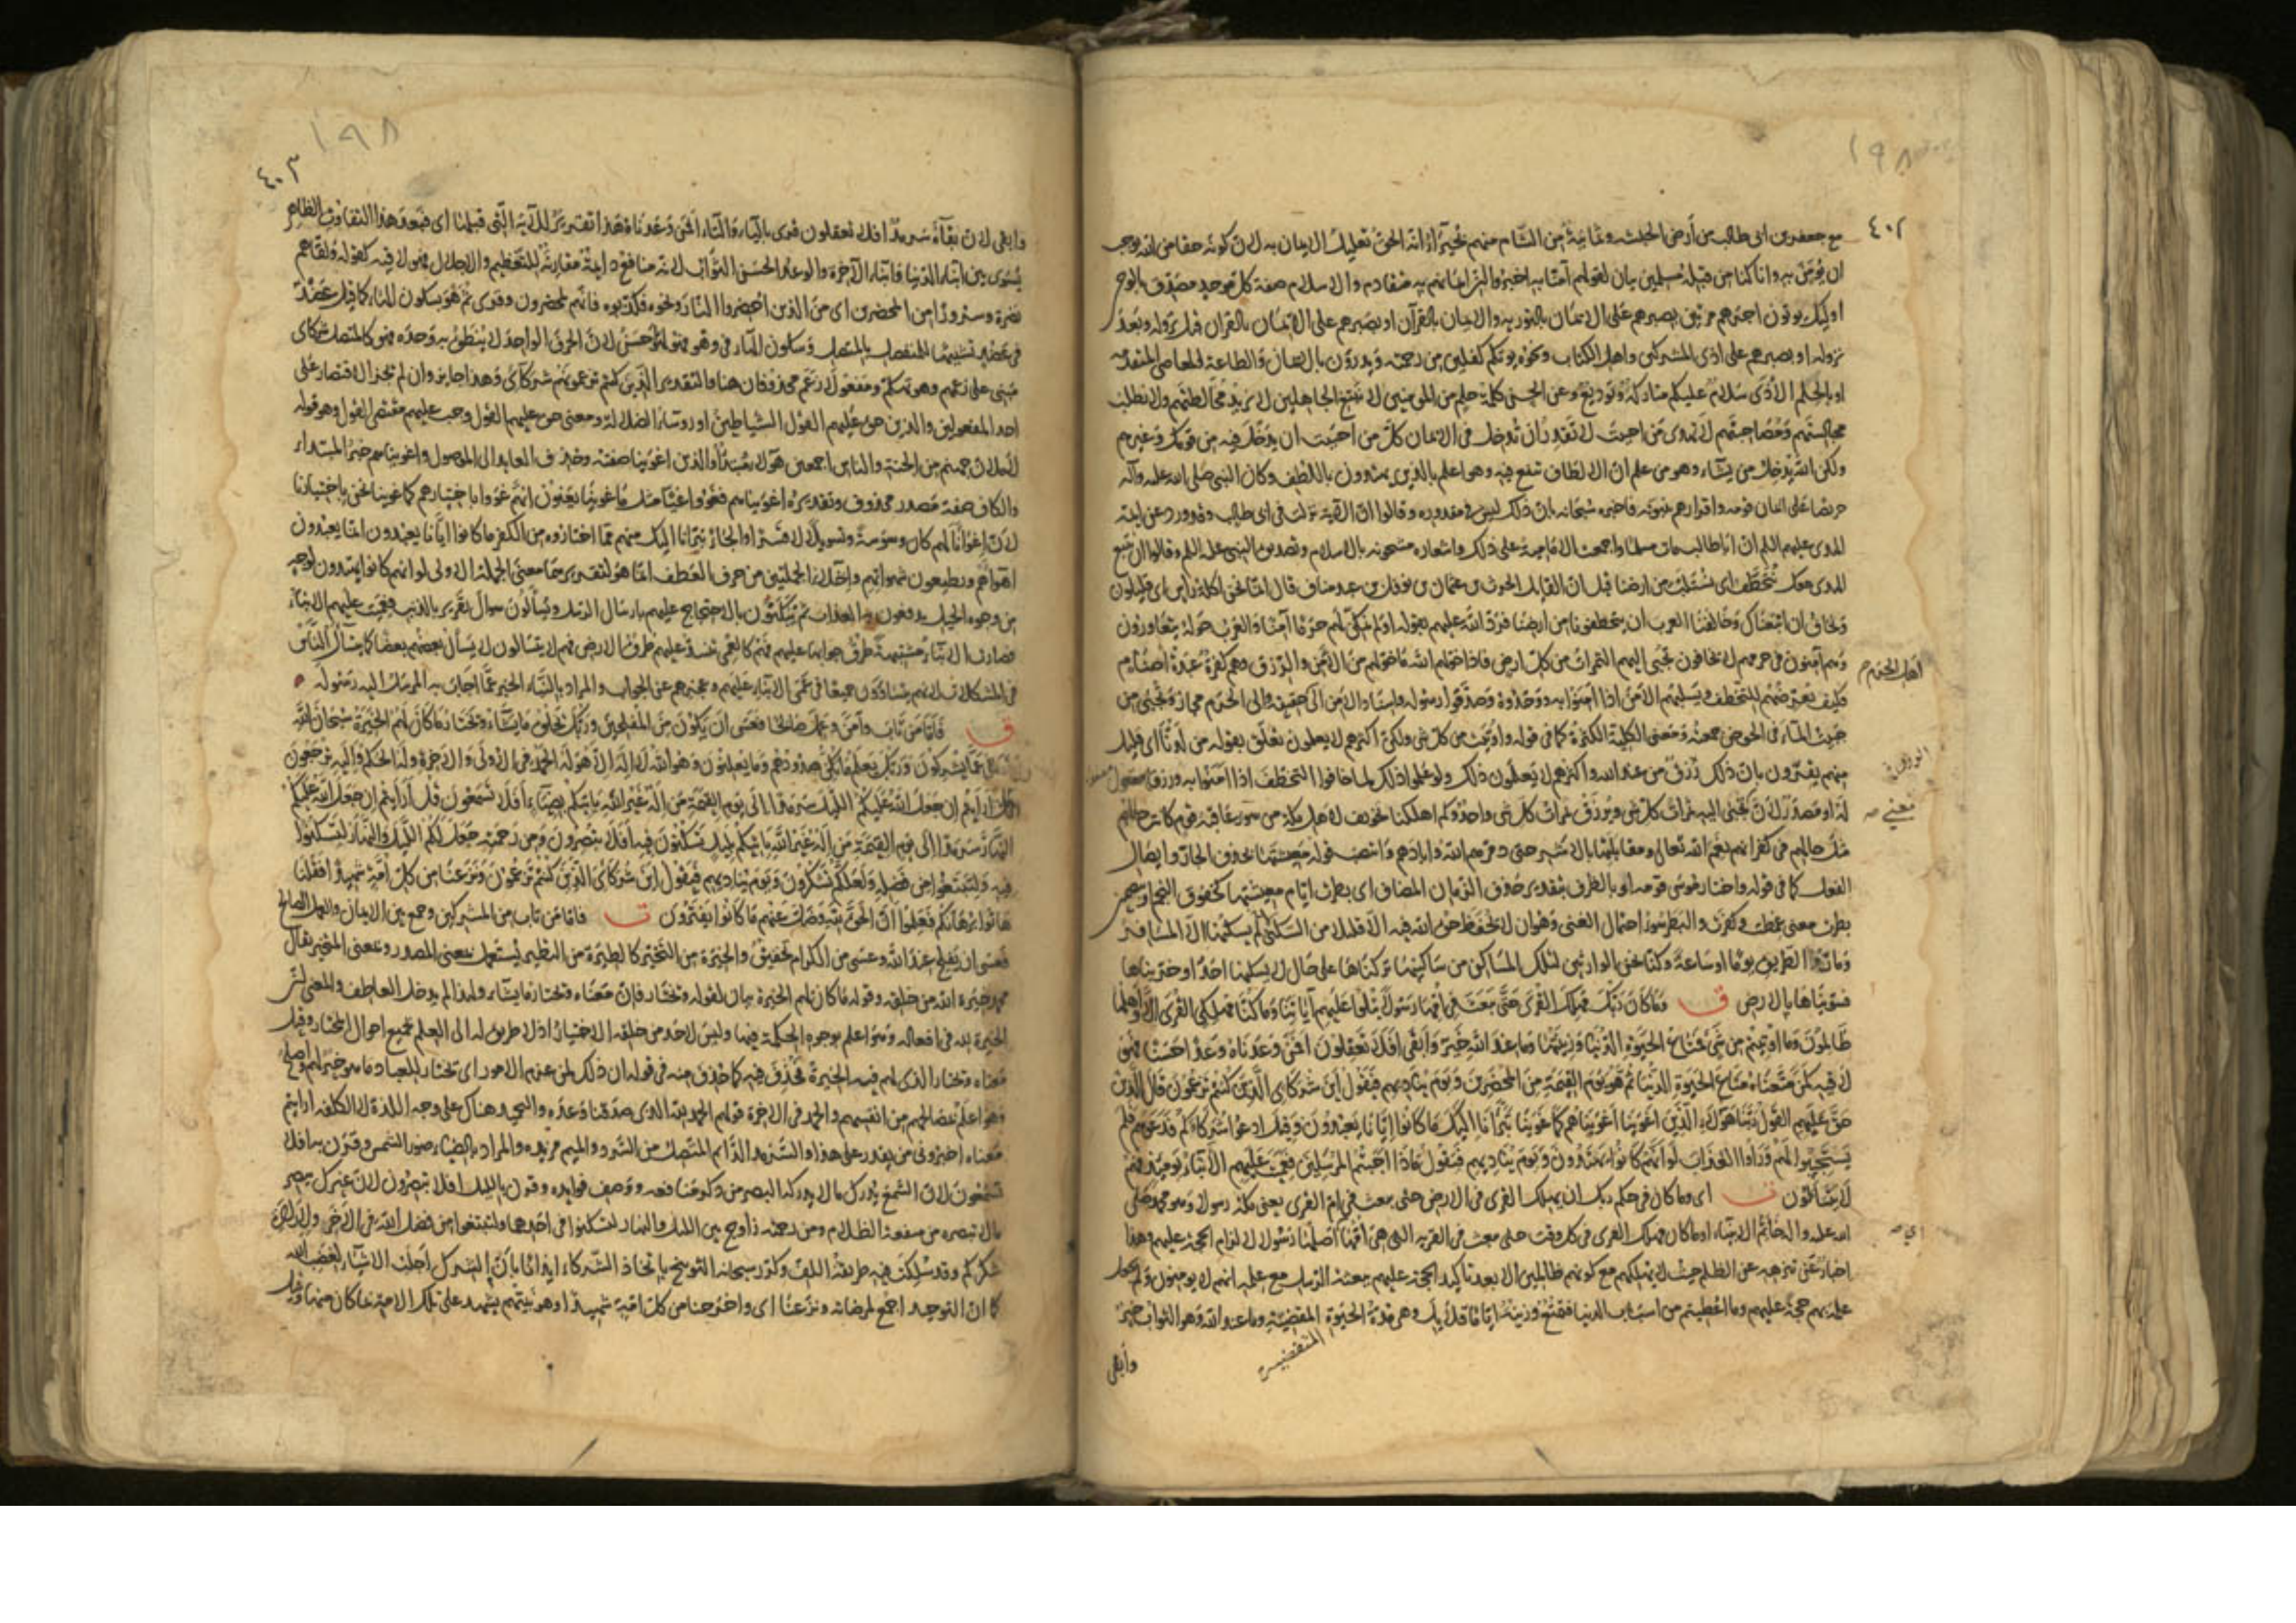 ١٩٨
٤٠٢
مع جعفر بن ابى طالب من أرض الحبشة وثمانية من الشام منهم بحيرا انه الحق تعليل للايمان به لان كونه حقا من الله يوجب
ان يؤمن به وانا كنا من قبله مسلمين بيان لقولهم آمنا به اخبروا ان ايمانهم به متقادم والاسلام صفة كل موحد مصدق بالوحى
اولئك يؤتون اجرهم مرتين بصبرهم على الايمان بالتورية والايمان بالقرآن او بصبرهم على الايمان بالقران قبل نزوله وبعد
نزوله او بصبرهم على اذى المشركين واهل الكتاب ونحوه يؤتكم كفلين من رحمته ويدرؤن بالحسنة والطاعة المعاصى المتقدمة
او بالحلم الاذى سلام عليكم متاركة وتوديع وعن الحسن كلمة حلم من المؤمنين لا نبتغى الجاهلين لا نريد مخالطتهم ولا نطلب
مجالستهم ومصاحبتهم لا تهدى من احببت لا تقدر ان تدخل فى الايمان كل من احببت ان يدخل فيه من قومك وغيرهم
ولكن الله يدخل من يشاء وهو من علم ان الالطاف تنفع فيه وهو اعلم بالذين يهتدون باللطف وكان النبى صلى الله عليه وآله
حريصا على ايمان قومه واقرارهم بنبوته فاخبره سبحانه بان ذلك ليس فى مقدوره وقالوا ان الآية نزلت فى ابى طالب وقد ورد عن ائمة
الهدى عليهم السلم ان ابا طالب مات مسلما واجمعت الامامية على ذلك واشعاره مشحونة بالاسلام وتصديق النبى عليه السلم وقالوا ان نتبع
الهدى معك نتخطف اى نستلب من ارضنا قيل ان القايل الحرث بن عثمان بن نوفل بن عبد مناف قال انما نحن اكلة راس اى قليلون
ونخاف ان اتبعناك وخالفنا العرب ان يتخطفونا من ارضنا فرد الله عليهم بقوله اولم نمكن لهم حرما آمنا والعرب حوله يتغاورون
وهم آمنون فى حرمهم لا يخافون تجبى اليهم الثمرات من كل ارض فاذا خولهم الله ما خولهم من الامن والرزق وهم كفرة عبدة اصنام
فكيف يعرضهم للتخطف ويسلبهم الامن اذا امنوا به ووحدوه وصدقوا رسوله واسناد الامن الى حقيقة والى الحرم مجاز وتجبى من
جبيت الماء فى الحوض جمعته ومعنى الكلية الكثرة كما فى قوله واوتيت من كل شئ ولكن اكثرهم لا يعلمون تعلق بقوله من لدنا اى قليل
منهم يقرون بان ذلك رزق من عند الله واكثرهم لا يعلمون ذلك ولو علموا ذلك لما خافوا التخطف اذا آمنوا به ورزقا مفعول
له او مصدر لان تجبى اليه ثمرات كل شئ ويرزق ثمرات كل شئ واحد وكم اهلكنا تخويف لاهل مكة من سوء عاقبة قوم كانت حالهم
مثل حالهم فى كفرانهم نعم الله تعالى ومقابلتها بالاشر حتى دمرهم الله وابادهم وانتصب قوله معيشتها بحذف الجار وايصال
الفعل كما فى قوله واختار موسى قومه او بالظرف بتقدير حذف الزمان المضاف اى بطرت ايام معيشتها كخفوق النجم او ضمن
بطرت معنى غمطت وكفرت والبطر سوء احتمال الغنى وهو ان لا يحفظ حق الله فيه الا قليلا من السكنى لم يسكنها الا المسافر
ومارّ الطريق يوما او ساعة وكنا نحن الوارثين لتلك المساكن من ساكنيها تركناها على حال لا يسكنها احد او خربناها
فسويناها بالارض ق وما كان ربك مهلك القرى حتى يبعث فى امها رسولا يتلوا عليهم آياتنا وما كنا مهلكى القرى الا واهلها
ظالمون وما اوتيتم من شئ فمتاع الحيوة الدنيا وزينتها وما عند الله خير وابقى افلا تعقلون افمن وعدناه وعدا حسنا فهو
لاقيه كمن متعناه متاع الحيوة الدنيا ثم هو يوم القيمة من المحضرين ويوم يناديهم فيقول اين شركاى الذين كنتم تزعمون قال الذين
حق عليهم القول ربنا هؤلاء الذين اغوينا اغويناهم كما غوينا تبرأنا اليك ما كانوا ايانا يعبدون وقيل ادعوا شركاءكم فدعوهم فلم
يستجيبوا لهم ورأوا العذاب لو انهم كانوا يهتدون ويوم يناديهم فيقول ماذا اجبتم المرسلين فعميت عليهم الانباء يومئذ فهم
لا يتساءلون ت اى وما كان فى حكم ربك ان يهلك القرى فى الارض حتى يبعث فى ام القرى يعنى مكة رسولا وهو محمد صلى
الله عليه واله خاتم الانبياء او ما كان مهلك القرى فى كل وقت حتى يبعث فى القرية التى هى امها اصلها رسولا لالزام الحجة عليهم وهذا
اخبار عن تنزهه عن الظلم حيث لا يهلكهم مع كونهم ظالمين الا بعد تاكيد الحجة عليهم ببعثة الرسل مع علمه انهم لا يومنون ولم يجعل
علمه بهم حجة عليهم وما اعطيتم من اسباب الدنيا فتمتع وزينة اياما قلايل وهى مدة الحيوة المنقضية وما عند الله وهو الثواب خير
اهل الحرم
معنى
اى
المنقضية
وأبقى
١٩٨
٤٠٣
وابقى لان بقآءه سرمد افلا تعقلون قرى بالياء والتاء افمن وعدناه هذا تقرير للآية التى قبلها اى فبعد هذا التفاوت الظاهر
يسوى بين ابناء الدنيا وابناء الآخرة والوعد الحسن الثواب لانه منافع دايمة مقارنة للتعظيم والاجلال فهو لاقيه كقوله ولقاهم
نضرة وسرورا من المحضرين اى من الذين احضروا النار ونحوه فكذبوه فانهم لمحضرون وقرى ثم هو بسكون الهاء كما قيل عضد
فى عضد تشبيها للمنفصل بالمتصل وسكون الهاء فى وهو فهو لهو احسن لان الحرف الواحد لا ينطق به وحده فهو كالمتصل شركاى
مبنى على زعمهم وهو تهكم ومفعولا زعم محذوفان هنا والتقدير الذين كنتم تزعمونهم شركاى وهذا جايز وان لم يجز الاقتصار على
احد المفعولين والذين حق عليهم القول الشياطين او روساء الضلالة ومعنى حق عليهم القول وجب عليهم مقتضى القول وهو قوله
لاملان جهنم من الجنة والناس اجمعين هؤلاء مبتدأ والذين اغوينا صفته وحذف العايد الى الموصول واغويناهم خبر المبتداء
والكاف صفة مصدر محذوف وتقديره اغويناهم فغووا غيا مثل ما غوينا يعنون انهم غووا باختيارهم كما غوينا نحن باختيارنا
لان اغوانا لهم كان وسوسة وتسويلا لا قسرا او الجاء تبرأنا اليك منهم مما اختاروه من الكفر ما كانوا ايانا يعبدون انما يعبدون
اهواهم ويطيعون شهواتهم واخلاء الجملتين من حرف العطف انما هو لتقريرهما معنى الجملة الاولى لو انهم كانوا يهتدون لوجه
من وجوه الحيل يدفعون به العذاب ثم يبكتون بالاحتجاج عليهم بارسال الرسل ويسألون سوال تقرير بالذنب فعميت عليهم الانباء
فصارت الانباء مشتبهة طرق جوابها عليهم فهم كالعمى تنسد عليهم طرق الارض فهم لا يتسالون لا يسأل بعضهم بعضا كما يتسآل الناس
فى المشكلات لانهم يتساوون جميعا فى عمى الانباء عليهم وعجزهم عن الجواب والمراد بالنباء الخبر عما اجاب به المرسل اليه رسوله
ق فاما من تاب وآمن وعمل صالحا فعسى ان يكون من المفلحين وربك يخلق ما يشآء ويختار ما كان لهم الخيرة سبحان الله
وتعالى عما يشركون وربك يعلم ما تكن صدورهم وما يعلنون وهو الله لا اله الا هو له الحمد فى الاولى والاخرة وله الحكم واليه ترجعون
قل ارأيتم ان جعل الله عليكم الليل سرمدا الى يوم القيمة من اله غير الله ياتيكم بضياء افلا تسمعون قل ارأيتم ان جعل الله عليكم
النهار سرمدا الى يوم القيمة من اله غير الله ياتيكم بليل تسكنون فيه افلا تبصرون ومن رحمته جعل لكم الليل والنهار لتسكنوا
فيه ولتبتغوا من فضله ولعلكم تشكرون ويوم يناديهم فيقول اين شركاى الذين كنتم تزعمون ونزعنا من كل امة شهيدا فقلنا
هاتوا برهانكم فعلموا ان الحق لله وضل عنهم ما كانوا يفترون ت فاما من تاب من المشركين وجمع بين الايمان والعمل الصالح
فعسى ان يفلح عند الله وعسى من الكرام تحقيق والخيرة من التخير كالطيرة من التطير يستعمل بمعنى المصدر وبمعنى المتخير يقال
محمد خيرة الله من خلقه وقوله ما كان لهم الخيرة بيان لقوله ويختار فان معناه ويختار ما يشاء ولهذا لم يدخل العاطف والمعنى ان
الخيرة لله فى افعاله وهو اعلم بوجوه الحكمة فيها وليس لاحد من خلقه الاختيار اذ لا طريق له الى العلم بجميع احوال المختار وقيل
معناه ويختار الذى لهم فيه الخيرة فحذف فيه كما حذف منه فى قوله ان ذلك لمن عزم الامور اى تختار للعباد ما هو خير لهم واصلح
وهو اعلم بمصالحهم من انفسهم والحمد فى الاخرة قولهم الحمد لله الذى صدقنا وعده والتحميد هناك على وجه اللذة لا الكلفة ارايتم
معناه اخبرونى من يقدر على هذا والسرمد الدائم المتصل من السرد والميم مزيده والمراد بالضياء ضوء الشمس وقرن به افلا
تسمعون لان السمع يدرك ما لا يدركه البصر من ذكر منافعه ووصف فوايده وقرن بالليل افلا تبصرون لان غيرك يبصر
ما لا تبصره من منفعة الظلام ومن رحمته زاوج بين الليل والنهار لتسكنوا فى احدهما ولتبتغوا من فضل الله فى الآخر ولارادة
شكركم وقد سلكت فيه طريقة اللف وكرر سبحانه التوبيخ باتخاذ الشركاء ايذانا بان الشرك اجلب الاشياء لغضب الله
كما ان التوحيد اجمع لمرضاته ونزعنا اى واخرجنا من كل امة شهيدا وهو نبيهم يشهد على تلك الامة بما كان منها وقيل